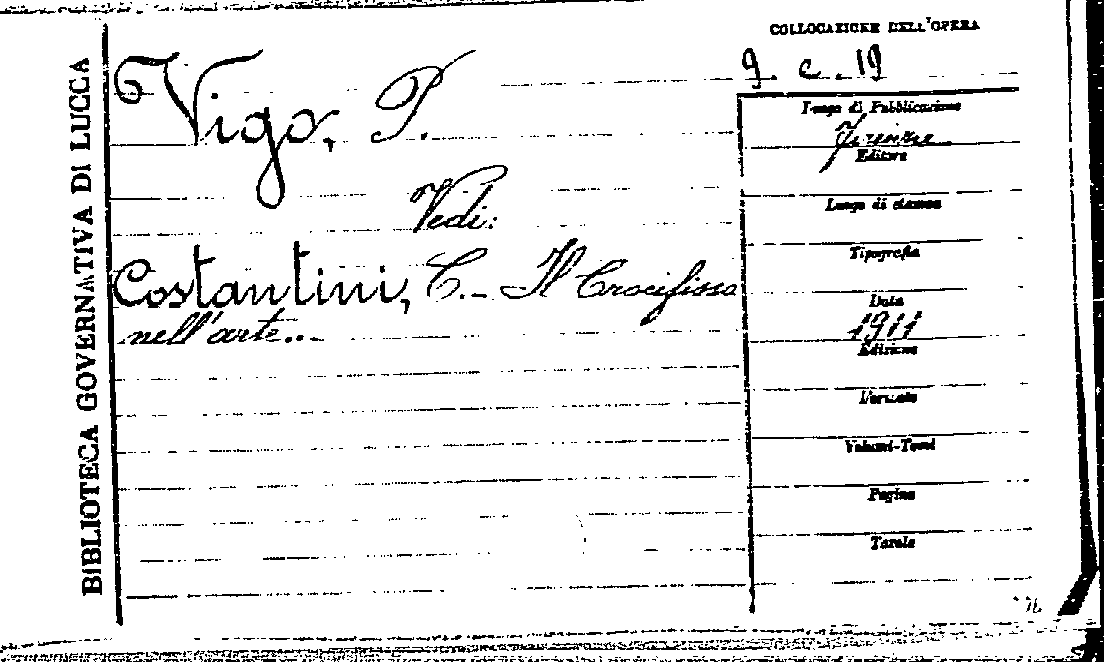 BIBLIOTECA GOVERNATIVA DI LUCCA
COLLOCAZIONE DELL'OPERA
9. c. 19
Vigo, P.
Vedi:
Costantini, C. - Il Crocifisso
nell'arte...
Luogo di Pubblicazione
Firenze
Editore
Luogo di stampa
Tipografia
Data
1911
Edizione
Formato
Volumi-Tomi
Pagine
Tavole